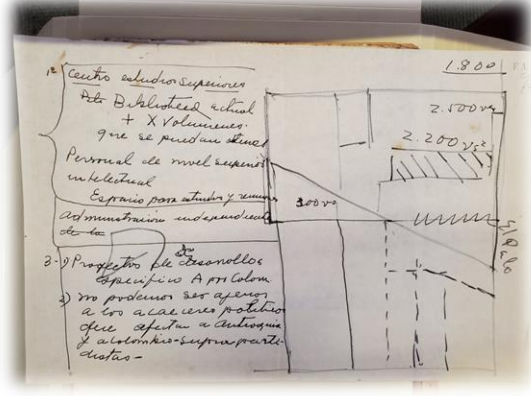 1º Centro estudios superiores
Biblioteca actual
+ X Volumenes.
que se puedan
Personal de nivel superior
intelectual
Espacio para estudios y
administración independiente
de la
3-1) Proyectos de desarrollos
específico A por Colom
2) no podemos ser ajenos
a los acaeceres politicos
que afectan a Antioquia
y a Colombia - supra parti-
distas -
1.800
2.500 vs
2.200 vs²
300 vs